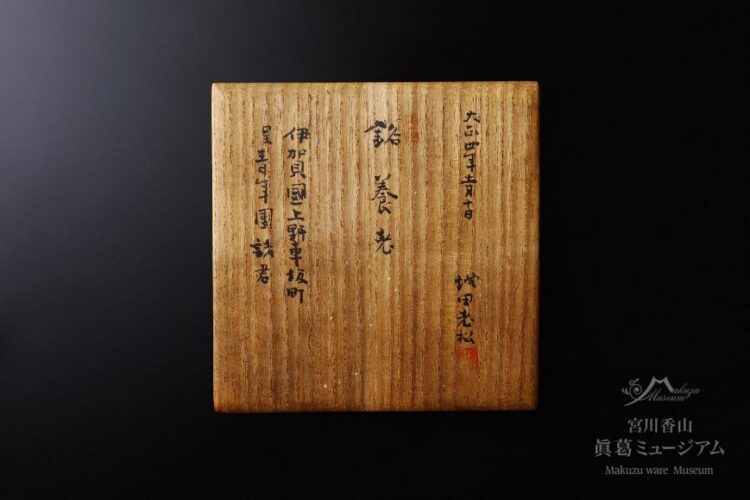 大正四年十一月十日
増田老松
銘養老
伊賀國上野車坂町
呈青年團諸君
Makuzu
Museum
宮川香山
眞葛ミュージアム
Makuzu ware Museum